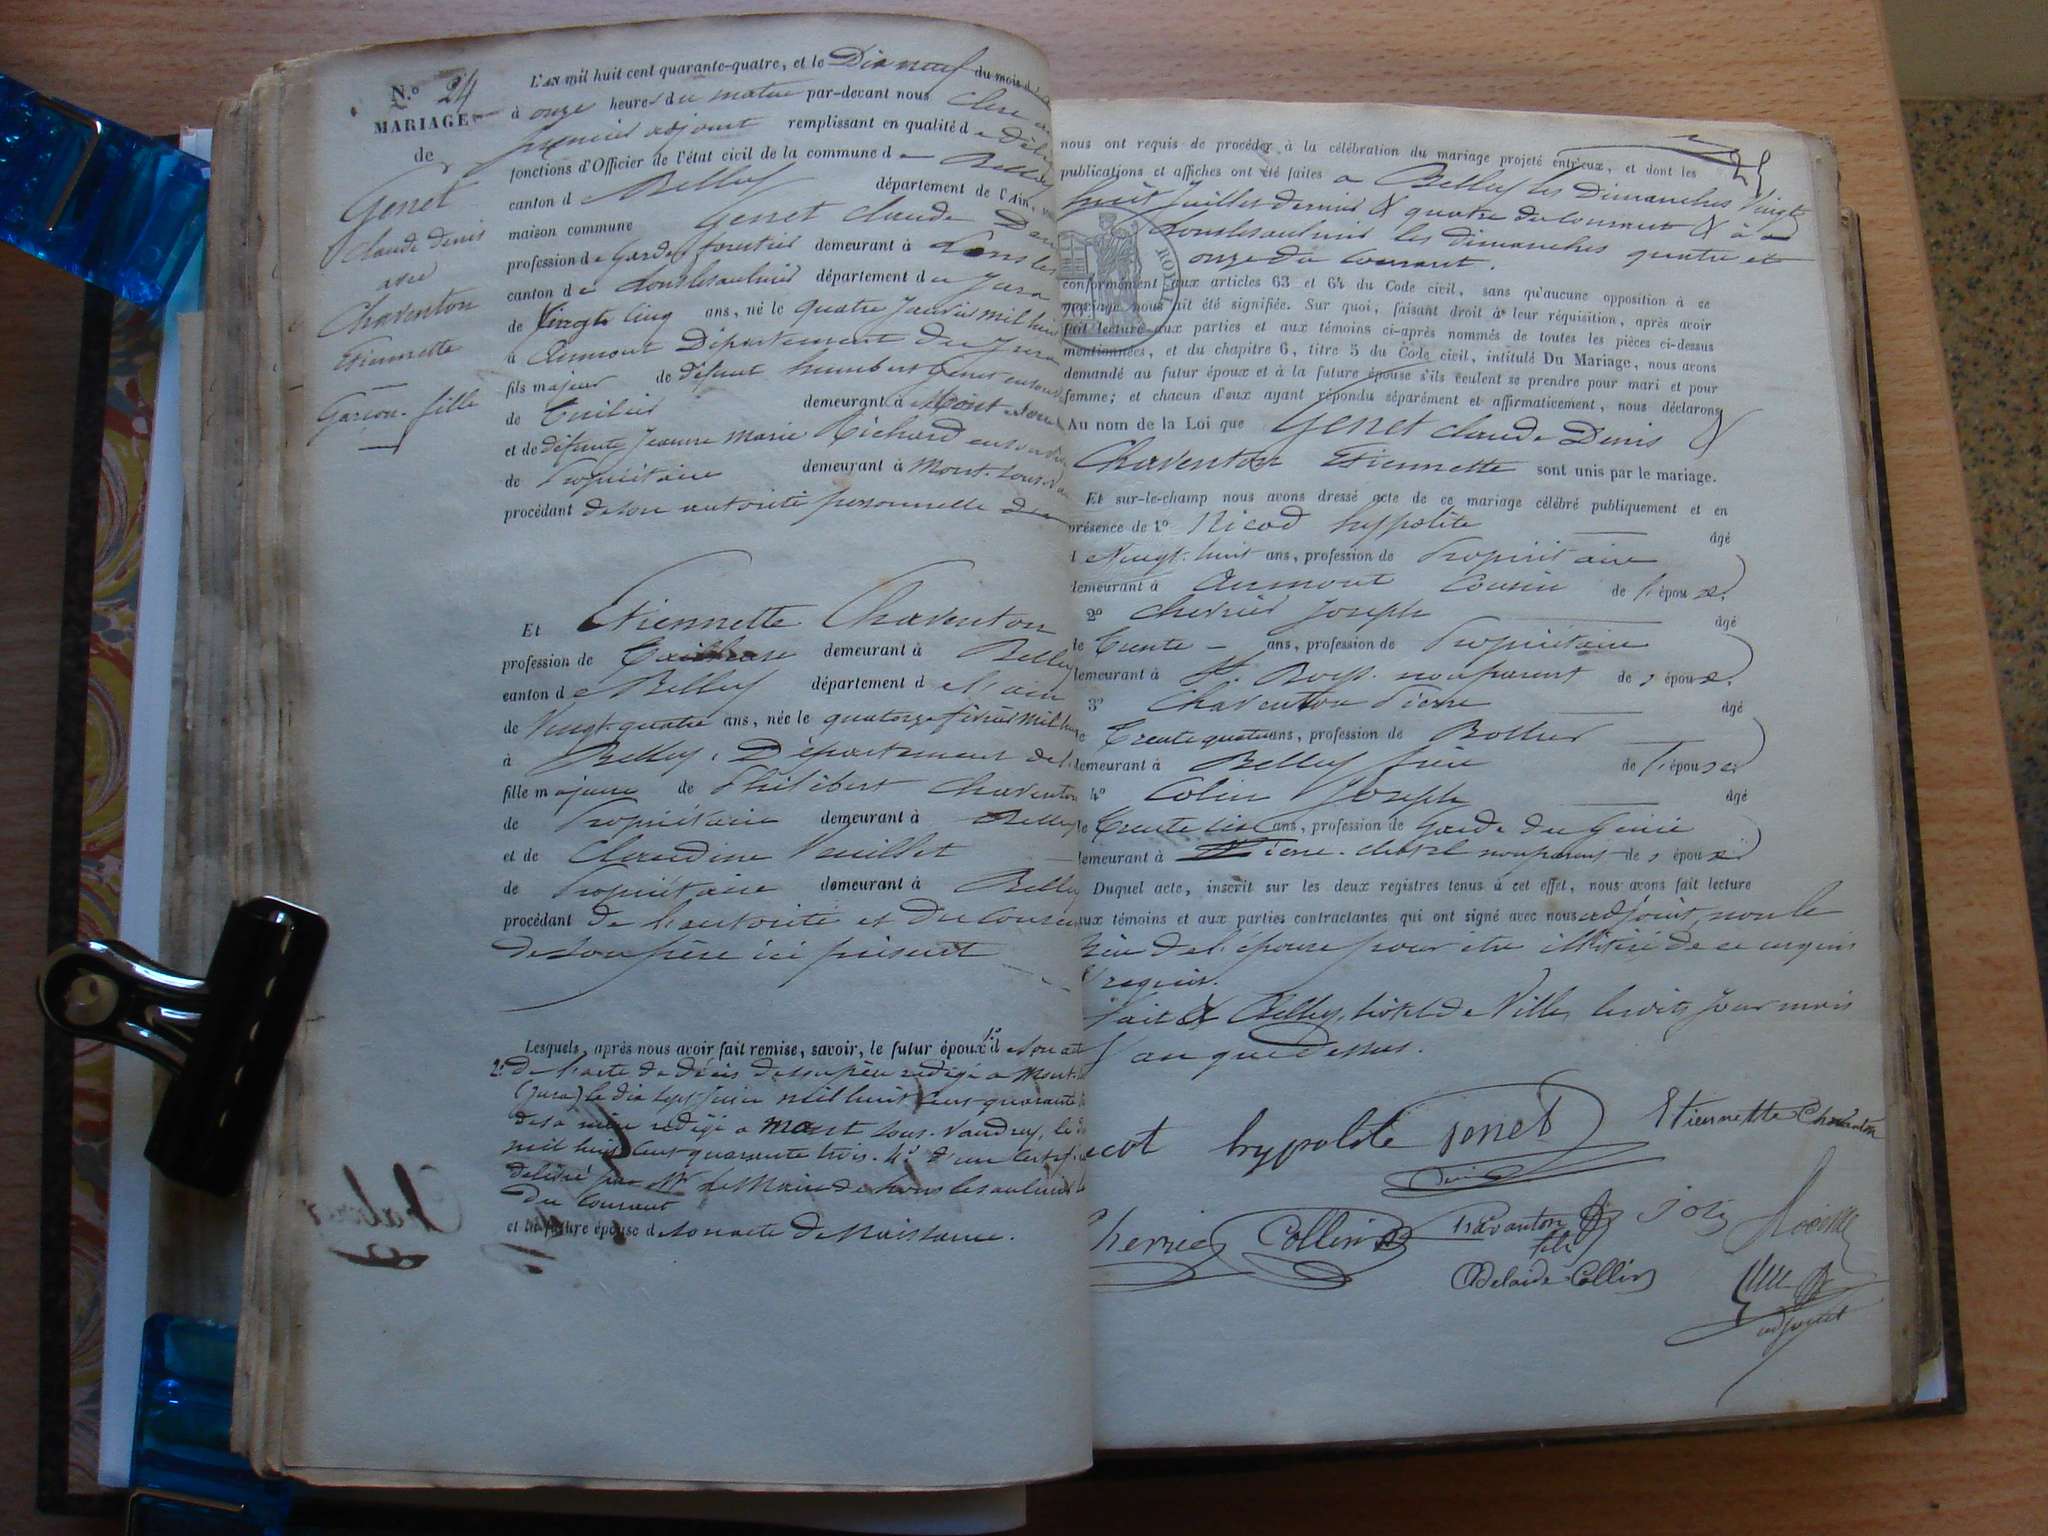 N.o 24
MARIAGE
de
Genet
Claude Denis
avec
Chaventon
Etiennette
Garçon. fille
L'an mil huit cent quarante-quatre, et le Dix neuf du mois d
à onze heures du matin par-devant nous Clerc
premier adjoint remplissant en qualité d
fonctions d'Officier de l'état civil de la commune de Belley
canton de Belley département de l'Ain,
maison commune Genet Claude Den
profession de Garde forestier demeurant à Lons les
canton de Lonslesaulnier département du Jura
de Vingt cinq ans, né le quatre Janvier mil huit
à Aumont Département du Jura
fils majeur de défunt humbert Genet
de demeurant à Mont
et de défunte Jeanne Marie Richard
de Propriétaire demeurant à Mont-sous-
procédant de son autorité personnelle
Et Etiennette Chaventon
profession de demeurant à Belley
canton de Belley département de l'ain
de Vingt-quatre ans, née le quatorze février mil huit
à Belley, Département de l
fille majeure de Philibert Chaventon
de Propriétaire demeurant à Belley
et de Claudine Vuillet
de Propriétaire demeurant à Belley
procédant de l'autorité et du consen
de son père ici présent
Lesquels, après nous avoir fait remise, savoir, le futur époux 1o de son act
2o de l'acte de décès de son père rédigé a Mont-
(Jura) le dix sept juin mil huit cent quarante
de sa mère rédigé a Mont sous-Vaudrey, le
mil huit cent quarante trois. 4o d'un certif
délivré par Mr le Maire de Lons lesaulnier
du courant
et la future épouse de son acte de Naissance.
25
nous ont requis de procéder à la célébration du mariage projeté entr'eux, et dont les
publications et affiches ont été faites a Belley les Dimanches Vingt
huit Juillet dernier & quatre du courant & à
Lonslesaulnier les dimanches quatre et
onze du courant.
conformément aux articles 63 et 64 du Code civil, sans qu'aucune opposition à ce
mariage nous ait été signifiée. Sur quoi, faisant droit à leur réquisition, après avoir
fait lecture aux parties et aux témoins ci-après nommés de toutes les pièces ci-dessus
mentionnées, et du chapitre 6, titre 5 du Code civil, intitulé Du Mariage, nous avons
demandé au futur époux et à la future épouse s'ils veulent se prendre pour mari et pour
femme; et chacun d'eux ayant répondu séparément et affirmativement, nous déclarons
Au nom de la Loi que Genet Claude Denis &
Chaventon Etiennette sont unis par le mariage.
Et sur-le-champ nous avons dressé acte de ce mariage célébré publiquement et en
présence de 1o Nicod hyppolite âgé
Vingt-huit ans, profession de Propriétaire
demeurant à Aumont Cousin de l'époux.
2o Chevrier Joseph âgé
de Trente ans, profession de Propriétaire
demeurant à St. Boys. non parent des époux.
3o Chaventon Pierre âgé
Trente quatre ans, profession de Bottier
demeurant à Belley frère de l'épouse
4o Colin Joseph âgé
Trente six ans, profession de Garde du Génie
demeurant à Pierre-chatel non parent des époux
Duquel acte, inscrit sur les deux registres tenus à cet effet, nous avons fait lecture
aux témoins et aux parties contractantes qui ont signé avec nous adjoint, non le
père de l'épouse pour être illitéré de ce enquis
& requis.
fait à Belley, hôtel de Ville, lesdits jour mois
& an que dessus.
hyppolite Genet Etiennette Chavanton
Denis
Cherrier Collin Chavanton
fils
Adelaide Collin
adjoint